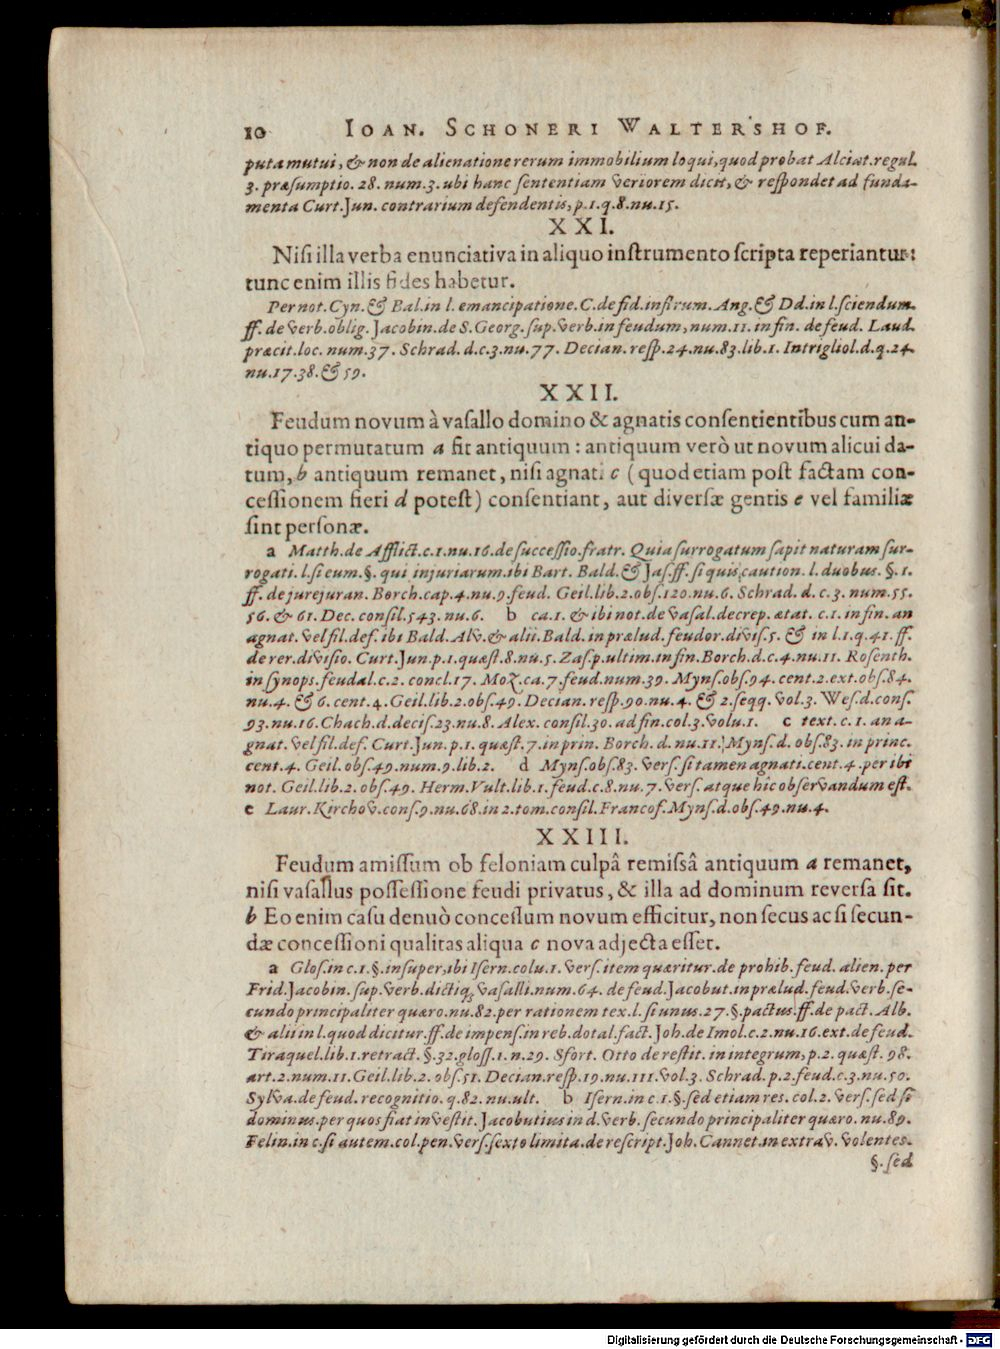 10 IOAN. SCHONERI WALTERSHOF.
puta mutui, & non de alienatione rerum immobilium loqui, quod probat Alciat. regul.
3. præsumptio. 28. num. 3. ubi hanc sententiam veriorem dicit, & respondet ad funda-
menta Curt. Jun. contrarium defendentis, p. 1. q. 8. nu. 15.
XXI.
Nisi illa verba enunciativa in aliquo instrumento scripta reperiantur:
tunc enim illis fides habetur.
Per not. Cyn. & Bal. in l. emancipatione. C. de fid. instrum. Ang. & Dd. in l. sciendum.
ff. de verb. oblig. Jacobin. de S. Georg. sup. verb. in feudum, num. 11. in fin. de feud. Laud.
præcit. loc. num. 37. Schrad. d. c. 3. nu. 77. Decian. resp. 24. nu. 83. lib. 1. Intrigliol. d. q. 24.
nu. 17. 38. & 59.
XXII.
Feudum novum à vasallo domino & agnatis consentientibus cum an-
tiquo permutatum a fit antiquum : antiquum verò ut novum alicui da-
tum, b antiquum remanet, nisi agnati c (quod etiam post factam con-
cessionem fieri d potest) consentiant, aut diversæ gentis e vel familiæ
sint personæ.
a Matth. de Afflict. c. 1. nu. 16. de successio. fratr. Quia surrogatum sapit naturam sur-
rogati. l. si eum. §. qui injuriarum. ibi Bart. Bald. & Jas. ff. si quis caution. l. duobus. §. 1.
ff. de jurejuran. Borch. cap. 4. nu. 9. feud. Geil. lib. 2. obs. 120. nu. 6. Schrad. d. c. 3. num. 55.
56. & 61. Dec. consil. 543. nu. 6. b ca. 1. & ibi not. de vasal. decrep. ætat. c. 1. in fin. an
agnat. vel fil. def. ibi Bald. Alv. & alii. Bald. in prælud. feudor. divis. 5. & in l. 1. q. 41. ff.
de rer. divisio. Curt. Jun. p. 1. quæst. 8. nu. 5. Zas. p. ultim. in fin. Borch. d. c. 4. nu. 11. Rosenth.
in synops. feudal. c. 2. concl. 17. Moz. ca. 7. feud. num. 39. Myns. obs. 94. cent. 2. ext. obs. 84.
nu. 4. & 6. cent. 4. Geil. lib. 2. obs. 49. Decian. resp. 90. nu. 4. & 2. seqq. vol. 3. Wes. d. cons.
93. nu. 16. Chach. d. decis. 23. nu. 8. Alex. consil. 30. ad fin. col. 3. volu. 1. c text. c. 1. an a-
gnat. vel fil. def. Curt. Jun. p. 1. quæst. 7. in prin. Borch. d. nu. 11. Myns. d. obs. 83. in princ.
cent. 4. Geil. obs. 49. num. 9. lib. 2. d Myns. obs. 83. vers. si tamen agnati. cent. 4. per ibi
not. Geil. lib. 2. obs. 49. Herm. Vult. lib. 1. feud. c. 8. nu. 7. vers. atque hic observandum est.
e Laur. Kirchov. cons. 9. nu. 68. in 2. tom. consil. Francof. Myns. d. obs. 49. nu. 4.
XXIII.
Feudum amissum ob feloniam culpâ remissâ antiquum a remanet,
nisi vasallus possessione feudi privatus, & illa ad dominum reversa sit.
b Eo enim casu denuò concessum novum efficitur, non secus ac si secun-
dæ concessioni qualitas aliqua c nova adjecta esset.
a Glos. in c. 1. §. insuper, ibi Isern. colu. 1. vers. item quæritur. de prohib. feud. alien. per
Frid. Jacobin. sup. verb. dictiq; vasalli. num. 64. de feud. Jacobut. in prælud. feud. verb. se-
cundo principaliter quæro. nu. 82. per rationem tex. l. si unus. 27. §. pactus. ff. de pact. Alb.
& alii in l. quod dicitur. ff. de impens. in reb. dotal. fact. Joh. de Imol. c. 2. nu. 16. ext. de feud.
Tiraquel. lib. 1. retract. §. 32. gloss. 1. n. 29. Sfort. Otto de restit. in integrum, p. 2. quæst. 98.
art. 2. num. 11. Geil. lib. 2. obs. 51. Decian. resp. 19. nu. 111. vol. 3. Schrad. p. 2. feud. c. 3. nu. 50.
Sylva. de feud. recognitio. q. 82. nu. ult. b Isern. in c. 1. §. sed etiam res. col. 2. vers. sed si
dominus. per quos fiat investit. Jacobutius in d. verb. secundo principaliter quæro. nu. 89.
Felin. in c. si autem. col. pen. vers. sexto limita. de rescript. Joh. Cannet. in extrav. volentes.
§. sed
Digitalisierung gefördert durch die Deutsche Forschungsgemeinschaft - DFG